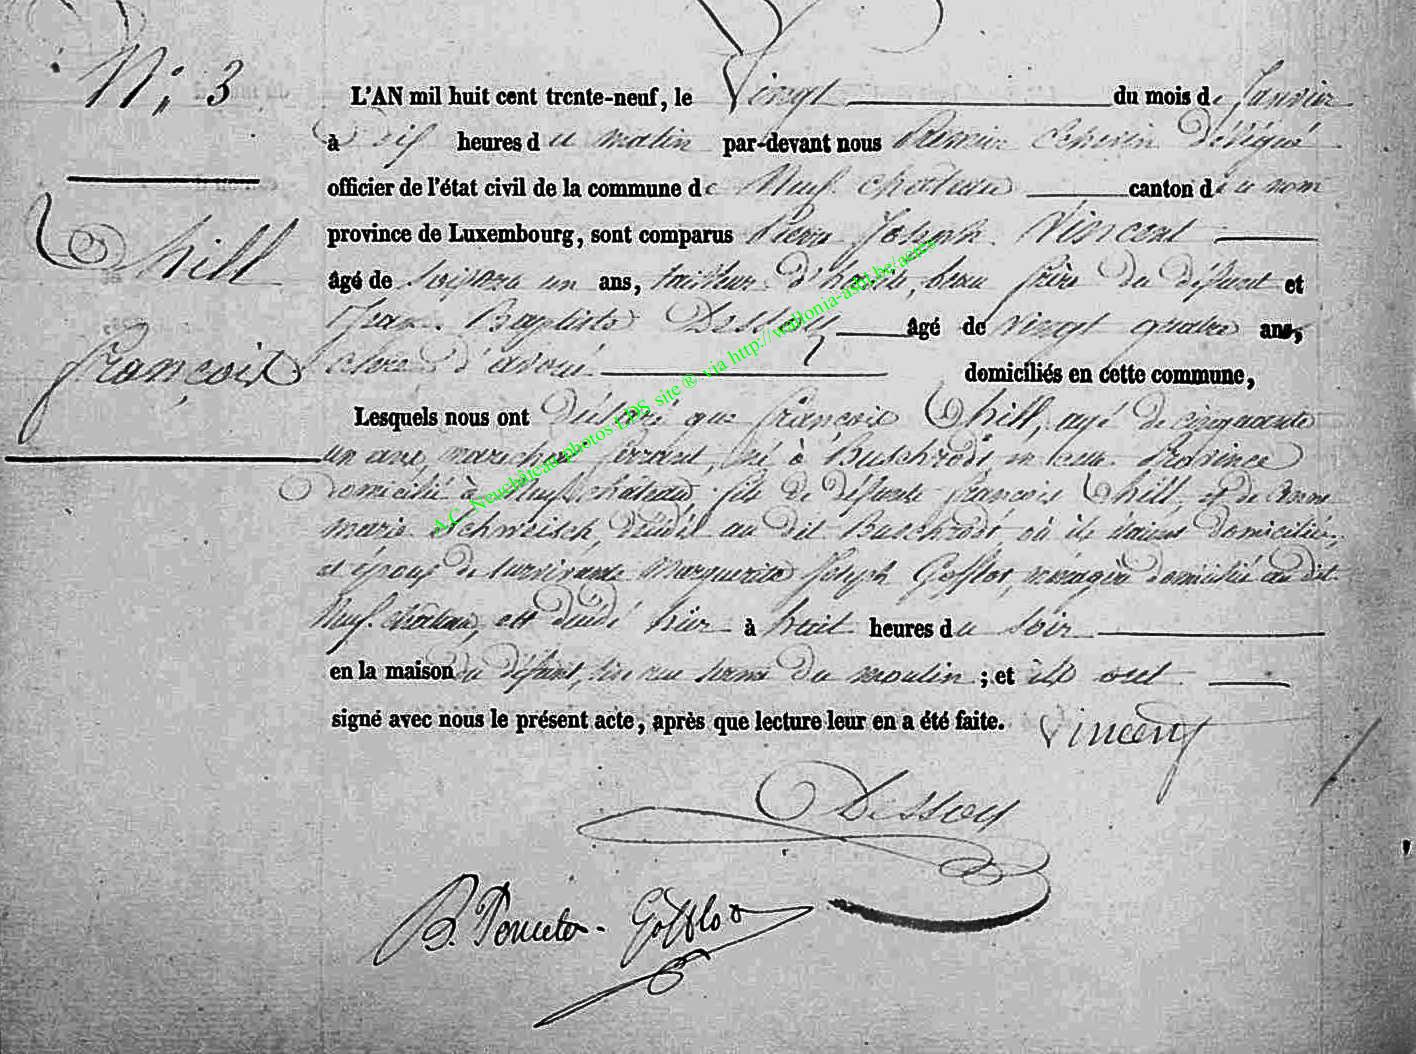 N° 3
Thill
François
L'AN mil huit cent trente-neuf, le Vingt du mois de Janvier
à dix heures du matin par-devant nous Premier Echevin délégué
officier de l'état civil de la commune de Neufchateau canton du nom
province de Luxembourg, sont comparus Pierre Joseph Vincent
âgé de soixante un ans, tailleur d'habits, beau frère du défunt et
Jean Baptiste Dessoy âgé de vingt quatre ans,
clerc d'avoué domiciliés en cette commune,
Lesquels nous ont déclaré que françois Thill, agé de cinquante
un ans, marechal ferrant, né à Buschrodt en cette Province
domicilié à Neufchateau fils de défunts françois Thill et de Anne
marie Schweisch, décédés au dit Buschrodt où ils étaient domiciliés,
et époux de survivante Marguerite Joseph Gofflot, ménagère domiciliée au dit
Neufchateau, est décédé hier à huit heures du soir
en la maison du défunt, sise rue du moulin ; et ils ont
signé avec nous le présent acte, après que lecture leur en a été faite. Vincent
Dessoy
B. Poncelet-Gofflot
A.C. Neuchâteau photos LDS site ® via http://wallonia-asbl.be/actes